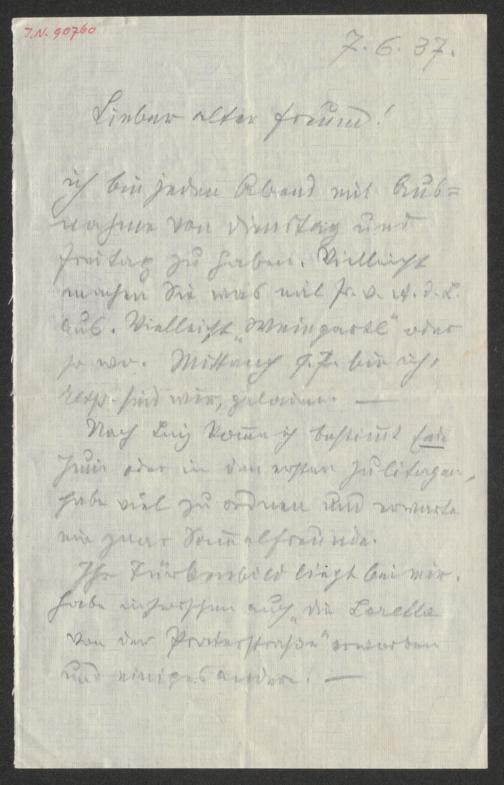 J.N. 90760
7. 6. 37.
Lieber alter Freund!
ich bin jeden Abend mit Aus=
nahme von Dienstag und
Freitag zu haben. Vielleicht
machen Sie was mit Fr. v. d. L.
aus. Vielleicht "Weingartl" oder
so wo. Mittwoch 9. 7. bin ich,
resp. sind wir, geladen. —
Nach komme ich bestimmt Ende
Juni oder in den ersten Julitagen,
habe viel zu ordnen und erwarte
ein paar Sammelfreunde.
Ihr Türkenbild liegt bei mir.
Habe inzwischen auch "die Lorette
von der Praterstraße" erworben
und einiges andere. —